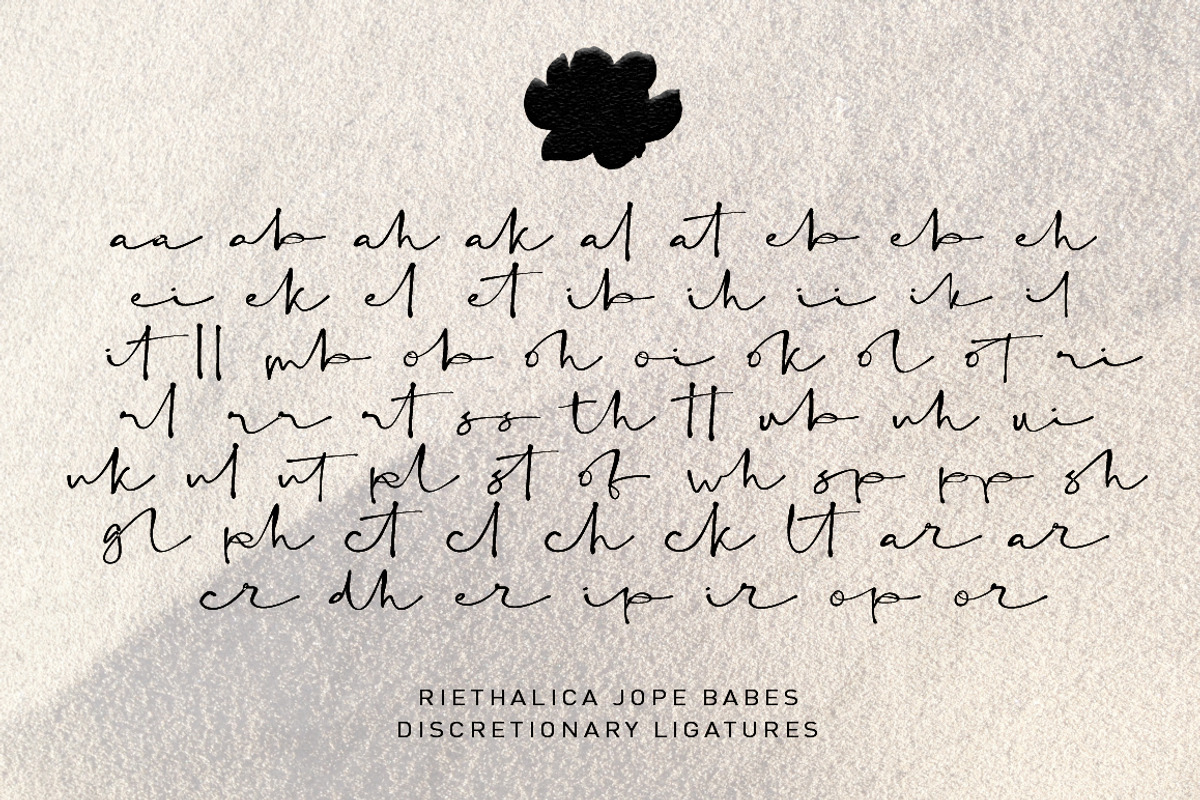 aa ab ah ak al at eb eb eh
ei ek el et ib ih ii ik il
it ll mb ob oh oi ok ol ot ri
rl rr rt ss th tt ub uh ui
uk ul ut pl st of wh sp pp sh
gl ph ct cl ch ck lt ar ar
cr dh er ip ir op or
RIETHALICA JOPE BABES
DISCRETIONARY LIGATURES